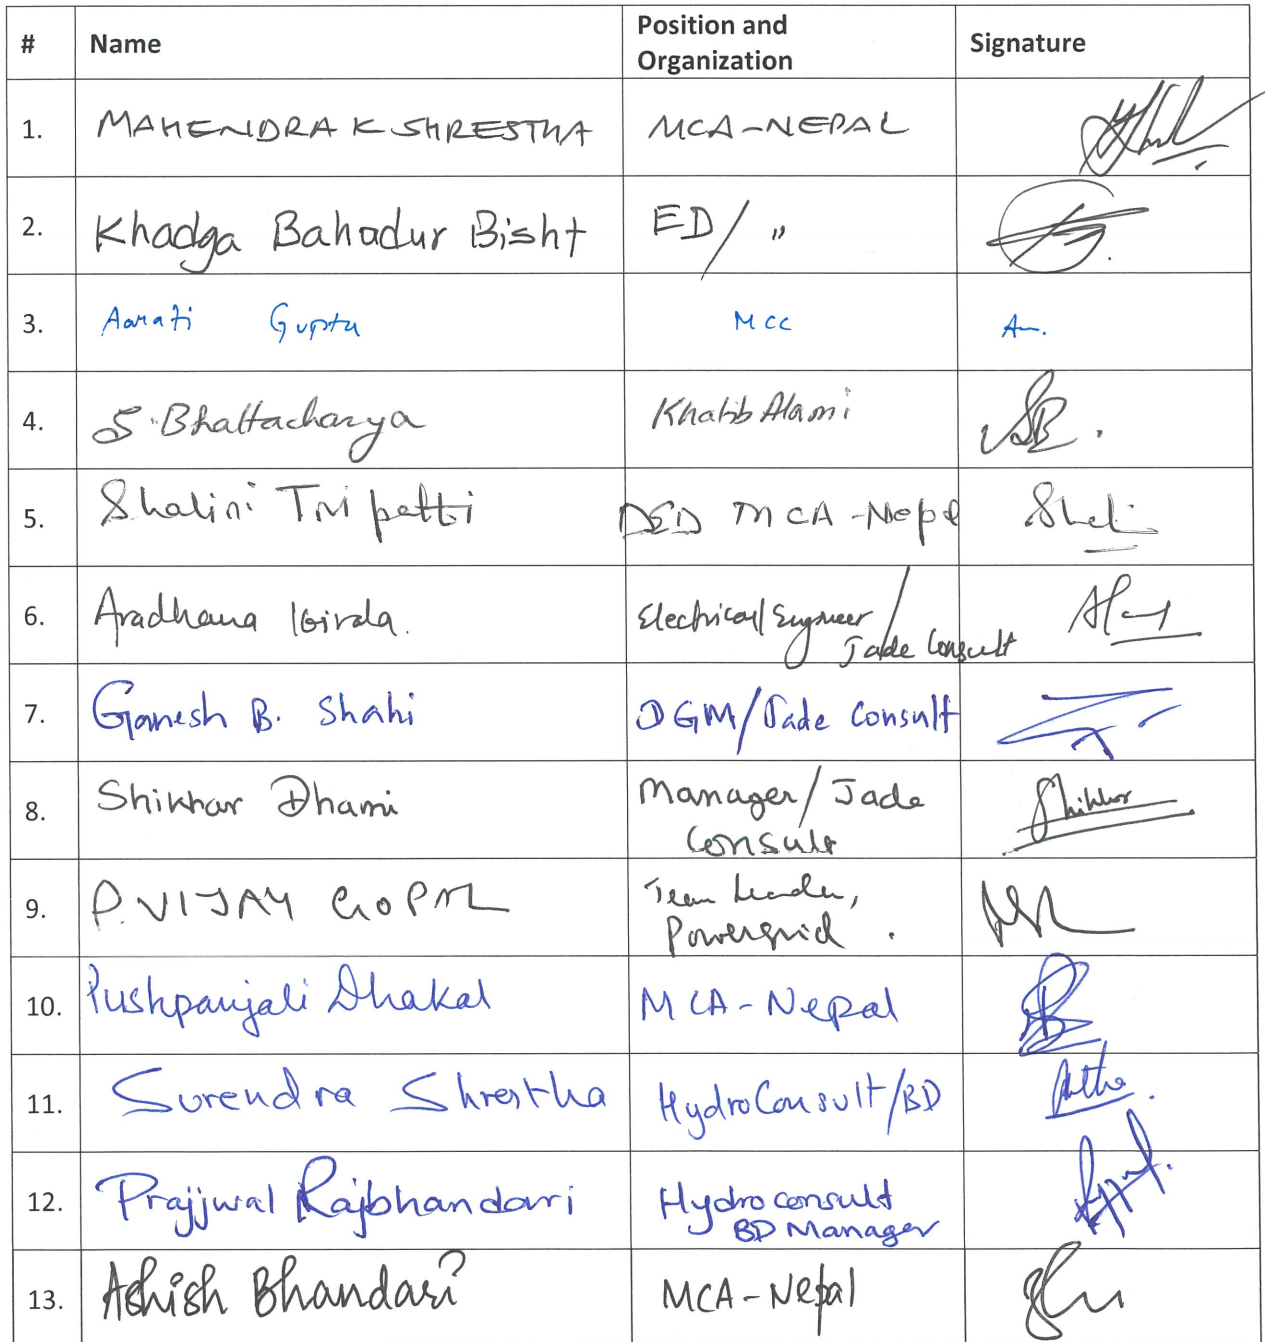 # Name Position and Organization Signature
1. MAHENDRA K SHRESTHA MCA-NEPAL
2. Khadga Bahadur Bisht ED/ "
3. Aarati Gupta MCC
4. S. Bhattacharya Khatib Alami
5. Shalini Tripathi DED MCA-Nepal
6. Aradhana Koirala. Electrical Engineer/ Jade Consult
7. Ganesh B. Shahi DGM/Jade Consult
8. Shikhar Dhami Manager/Jade Consult Shikhar
9. P. VIJAY GOPAL Team Leader, Powergrid.
10. Pushpanjali Dhakal MCA-Nepal
11. Surendra Shrestha HydroConsult/BD
12. Prajjwal Rajbhandari Hydroconsult BD Manager
13. Ashish Bhandari MCA-Nepal